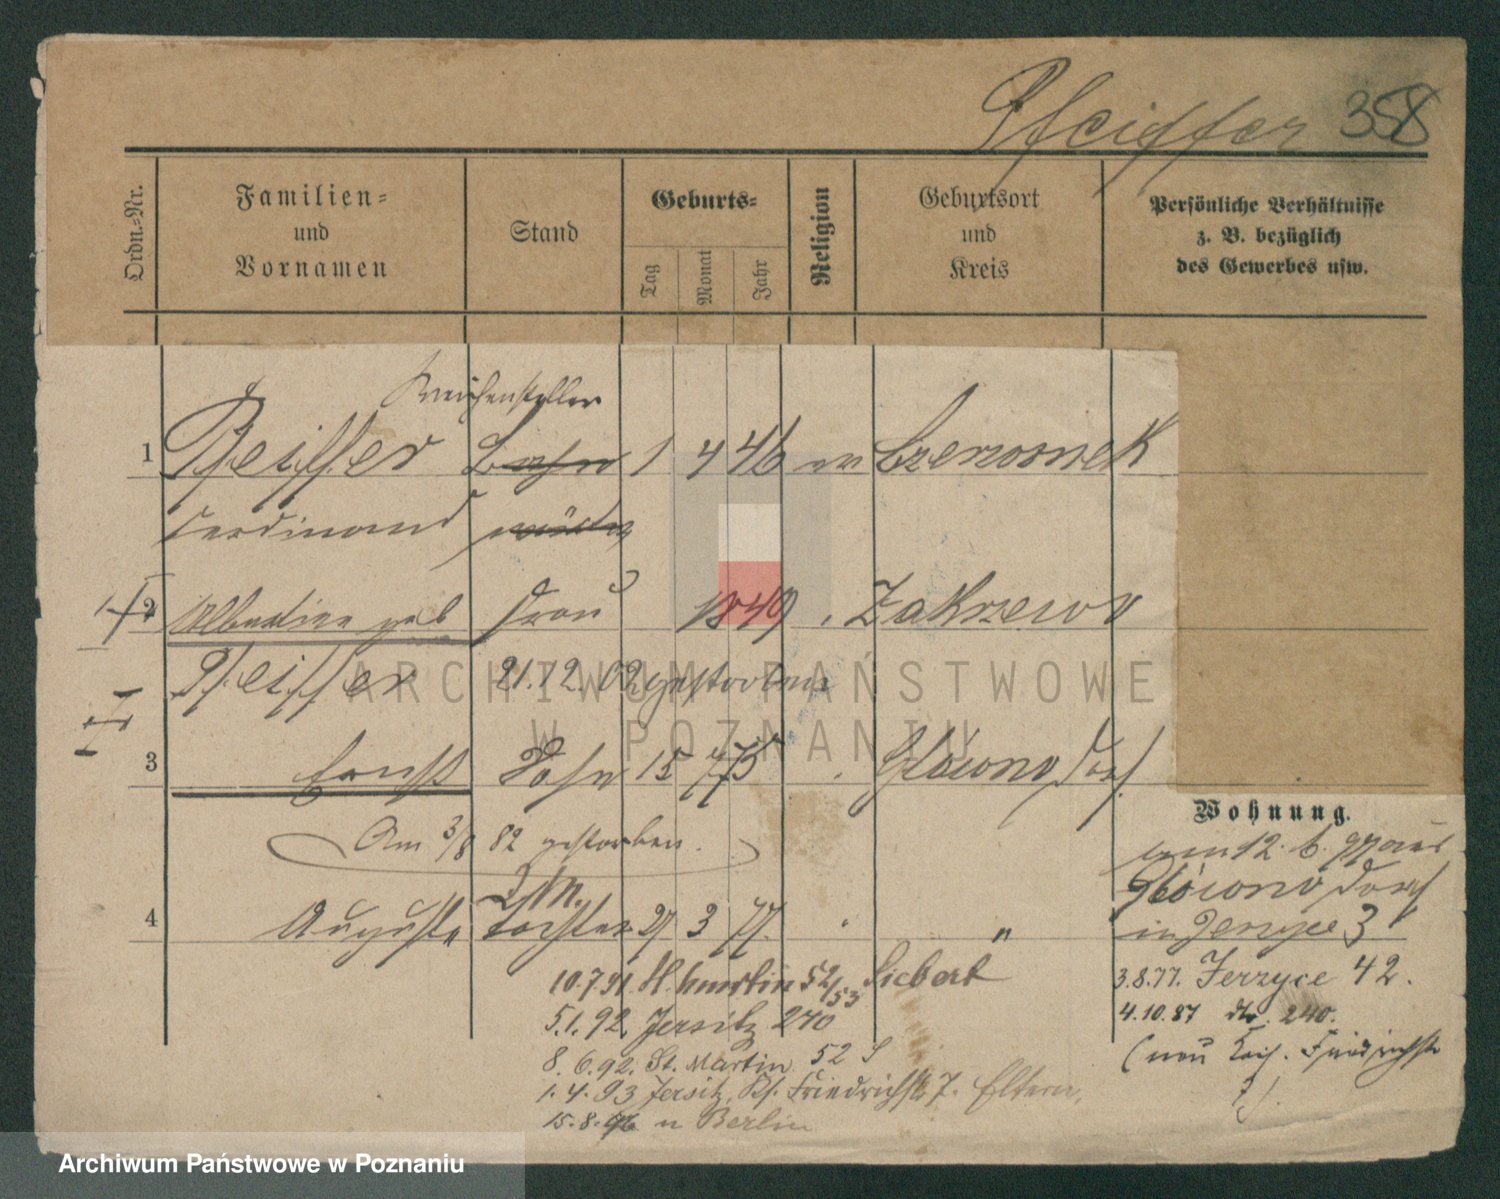 Pfeiffer 358
Ordn.-Nr.
Familien-
und
Vornamen
Stand
Geburts-
Tag
Monat
Jahr
Religion
Geburtsort
und
Kreis
Persönliche Verhältnisse
z. B. bezüglich
des Gewerbes usw.
Weichensteller
1 Pfeiffer Bahn 1 4 46 ev Czerwonak
Ferdinand wärter
2 Albertine geb Frau 1849 Zakrzewo
Pfeiffer 21.12.02 gestorben
3 Ernst Sohn 15 7 75 Glowno Dorf
Am 3/8 82 gestorben.
4 Auguste Tochter 27 3 77 " "
Wohnung.
12. 6. 77 aus
Glowno Dorf
in Jerzyce 3
3.8.77. Jerzyce 42.
4.10.87 dto. 240.
(neu Kais. Friedrichstr
10.7.91. St. Martin 52/53 Siebert
5.1.92. Jersitz 240
8.6.92. St. Martin 52 S
1.4.93 Jersitz, Ks. Friedrichstr 7. Eltern,
15.8.96 n Berlin
ARCHIWUM PAŃSTWOWE
W POZNANIU
Archiwum Państwowe w Poznaniu